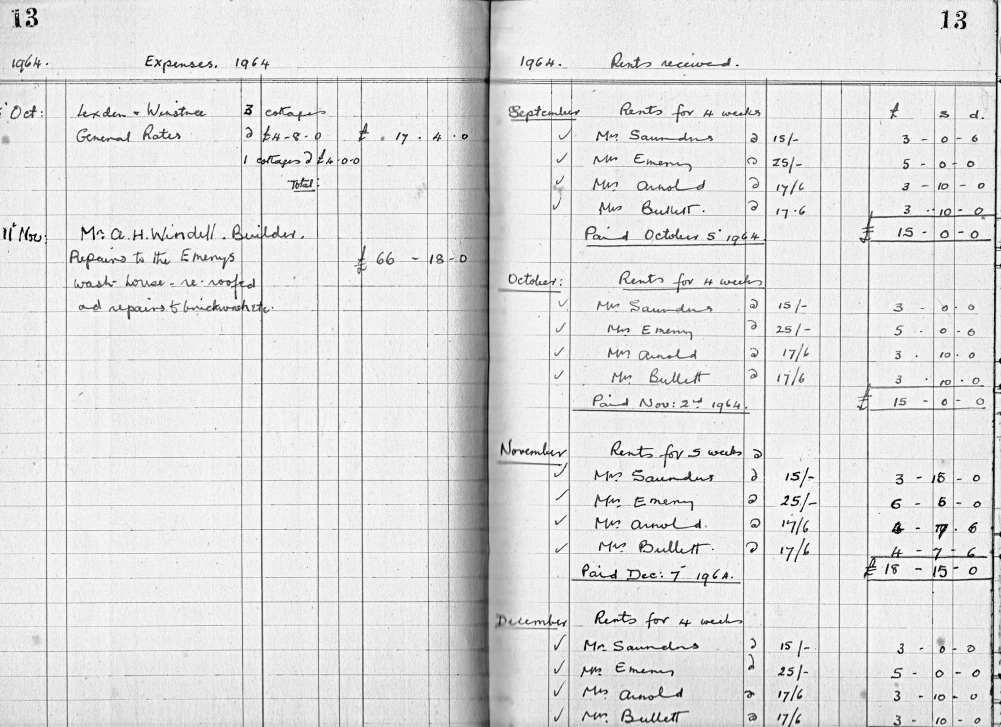 13
1964. Expenses. 1964
Oct: Lexden & Winstree 3 cottages
General Rates @ £4-8-0 £ 17. 4. 0
1 cottages @ £4.0.0
Total:
11th Nov: Mr. A. H. Windell. Builder.
Repairs to the Emerys £ 66 - 18 - 0
wash house - re-roofed
and repairs to brickwork etc.
13
1964. Rents received.
September Rents for 4 weeks £ s d.
✓ Mrs Saunders @ 15/- 3 - 0 - 0
✓ Mrs Emery @ 25/- 5 - 0 - 0
✓ Mrs Arnold @ 17/6 3 - 10 - 0
✓ Mrs Bullett. @ 17.6 3 . 10 - 0
Paid October 5th 1964 £ 15 - 0 - 0
October: Rents for 4 weeks
✓ Mrs Saunders @ 15/- 3 - 0 - 0
✓ Mrs Emery @ 25/- 5 . 0 - 0
✓ Mrs Arnold @ 17/6 3 . 10 . 0
✓ Mrs Bullett @ 17/6 3 . 10 . 0
Paid Nov: 2nd 1964. £ 15 - 0 - 0
November Rents for 5 weeks @
✓ Mrs Saunders @ 15/- 3 - 15 - 0
✓ Mrs Emery @ 25/- 6 - 5 - 0
✓ Mrs Arnold. @ 17/6 4 - 7 . 6
✓ Mrs Bullett. @ 17/6 4 - 7 - 6
Paid Dec: 7th 1964. £ 18 - 15 - 0
December Rents for 4 weeks
✓ Mrs Saunders @ 15/- 3 - 0 - 0
✓ Mrs Emery @ 25/- 5 - 0 - 0
✓ Mrs Arnold @ 17/6 3 - 10 - 0
✓ Mrs Bullett @ 17/6 3 - 10 - 0